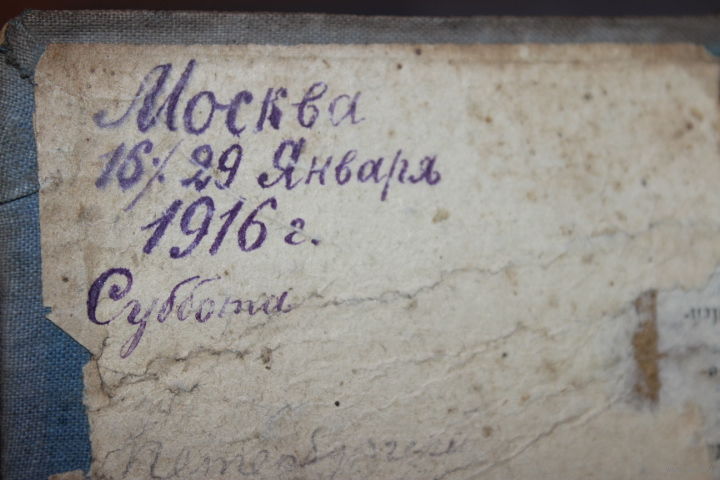 Москва
16/29 Января
1916 г.
Суббота